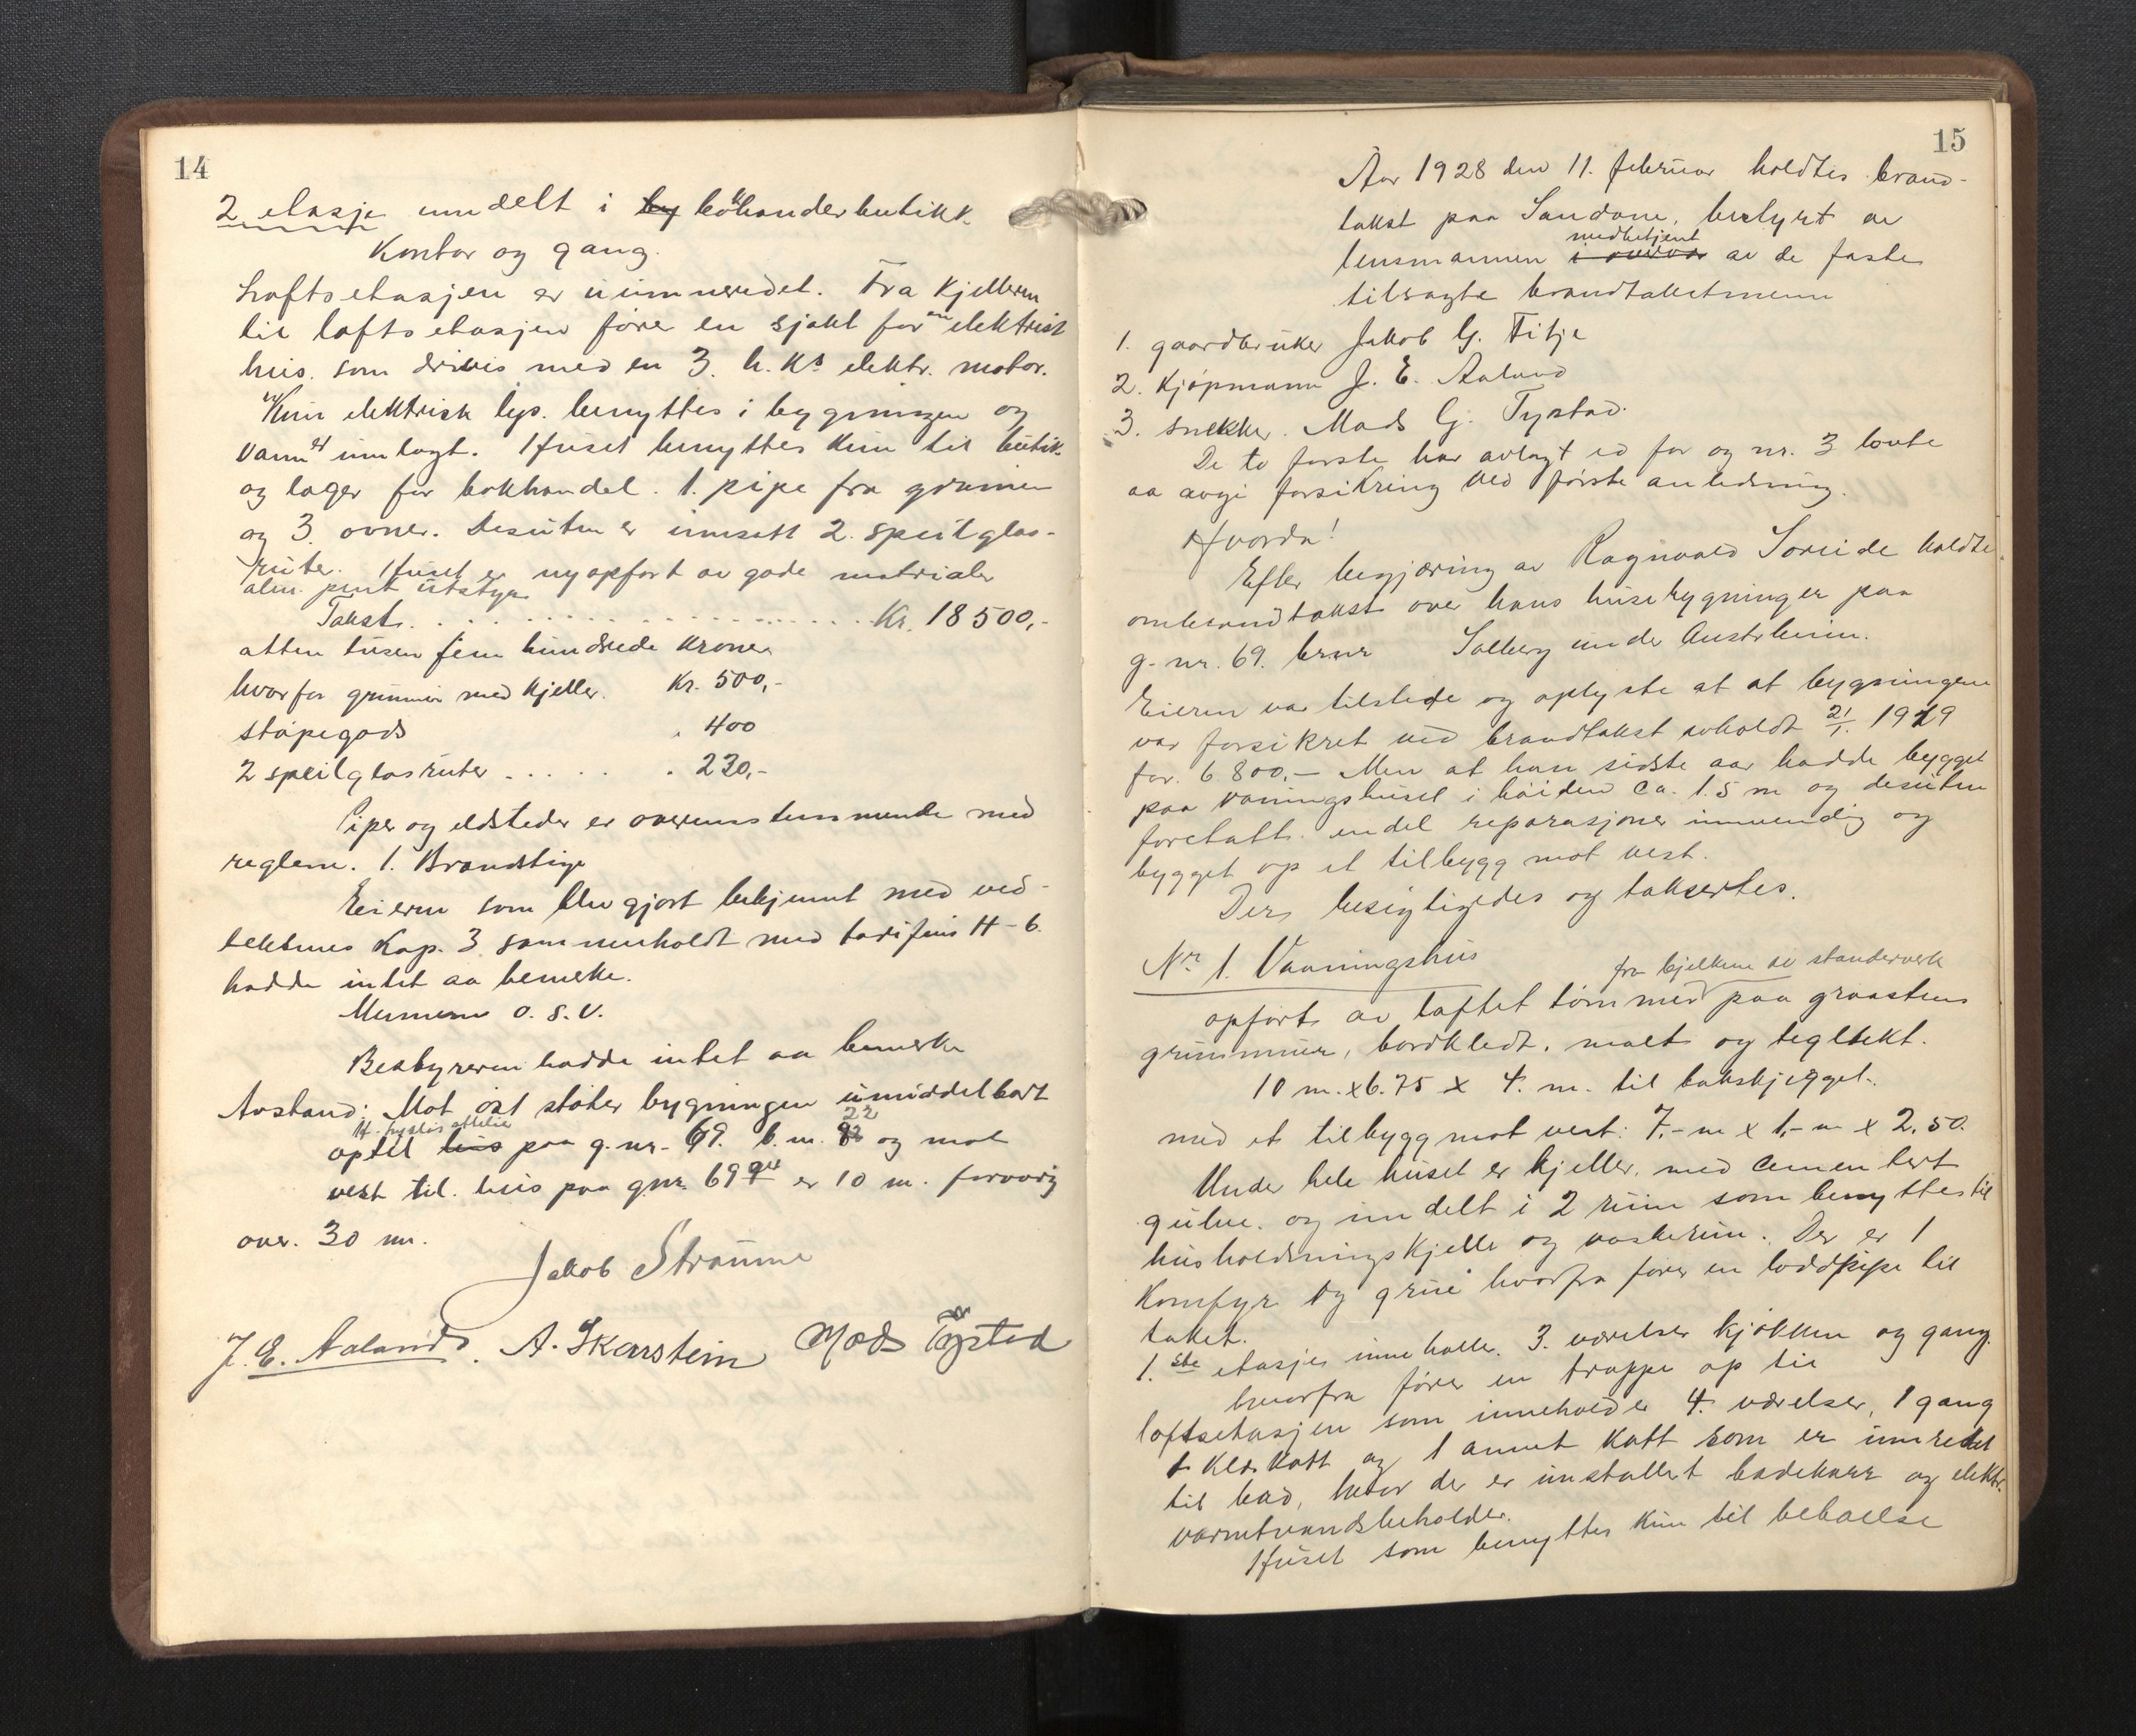 14
2 etasje inndelt i by bokhandlerbutikk
Kontor og gang.
Loftsetasjen er uinnredet. Fra kjelleren
til loftsetasjen fører en sjakt for en elektrisk
heis. som drives med en 3. h. Ks elektr. motor.
Kun elektrisk lys. benyttes i bygningen og
vann er innlagt. Huset benyttes kun til butik.
og lager for bokhandel. 1. pipe fra grunnen
og 3. ovner. Desuten er innsatt 2. speilglas-
ruter. Huset er nyopført av gode materialer
alm. pent utstyr
Takst . . . . . . . . . . Kr. 18500,-
atten tusen fem hundrede kroner
hvorfor grunnmur med kjeller. Kr. 500,-
støpegods . 400
2 speilglasruter . . . . . . 230,-
Piper og ildsteder er overensstemmende med
reglene. 1. Brandstige
Eieren som blev gjort bekjennt med ved-
tektenes Kap. 3 sammenholdt med tarifens H-6.
hadde intet aa bemerke.
Mennene o. s. v.
Bestyreren hadde intet aa bemerke
Avstand: Mot øst støter bygningen umiddelbart
optil hus paa g. nr. 69. b. nr. 22 og mot
vest til. hus paa gnr. 69 er 10 m. forøvrig
over. 30 m.
Jakob Straume
J. E. Aaland. A. Skarstein Mads Tystad
15
Aar 1928 den 11. februar holdtes brand-
takst paa Sandane, bestyrt av
medbetjent
lensmannen i overvær av de faste
tilsagte brandtakstmenn
1. gaardbruker Jakob G. Fitje
2. Kjøpmann J. E. Aaland
3. snekker. Mads G. Tystad.
De to første har avlagt ed før og nr. 3 lovte
aa avgi forsikring ved første anledning.
Hvorda!
Efter begjæring av Ragnvald Søreide holdtes
ombrandtakst over hans husebygninger paa
g. nr. 69. brnr Solberg under Austrheim.
Eieren var tilstede og oplyste at at bygningene
var forsikret ved brandtakst avholdt 21/1 1919
for. 6 800,- Men at han sidste aar hadde bygget
paa vaaningshuset i høiden ca. 1.5 m og desuten
foretatt. endel reparasjoner innvendig og
bygget op et tilbygg mot vest.
Der besigtigedes og takseertes.
Nr 1. Vaaningshus
fra bjelkene av standerverk
opført av laftet tømmer paa graastens
grunnmur, bordkledt. malt og tegltekt.
10 m. x 6.75 x 4. m. til takskjegget.
med et tilbygg mot vest: 7,- m x 1,- m x 2.50.
Under hele huset er kjeller. med cementert
gulve. og inndelt i 2 rum som benyttes til
husholdningskjeller og vaskerum. Der er 1
Komfyr og grue hvorfra fører en loddpipe til
taket.
1.ste etasje inneholder. 3. værelser kjøkken og gang.
hvorfra fører en trappe op til
loftsetasjen som inneholder 4. værelser, 1 gang
1 kleskott og 1 annet kott som er innredet
til bad, hvor der er installert badekarr og elektr.
varmtvandsbeholder.
Huset som benyttes kun til beboelse